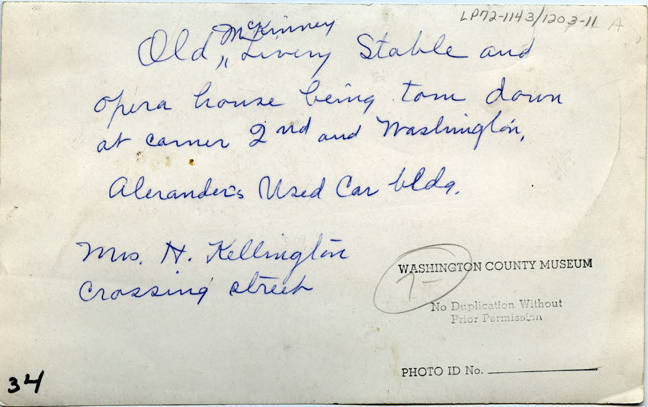 LP72-1143/1203-11 A
McKinney
Old " Livery Stable and
opera house being torn down
at corner 2nd and Washington,
Alexander's Used Car bldg.
Mrs. H. Kellington
crossing street
WASHINGTON COUNTY MUSEUM
No Duplication Without
Prior Permission
PHOTO ID No.
34